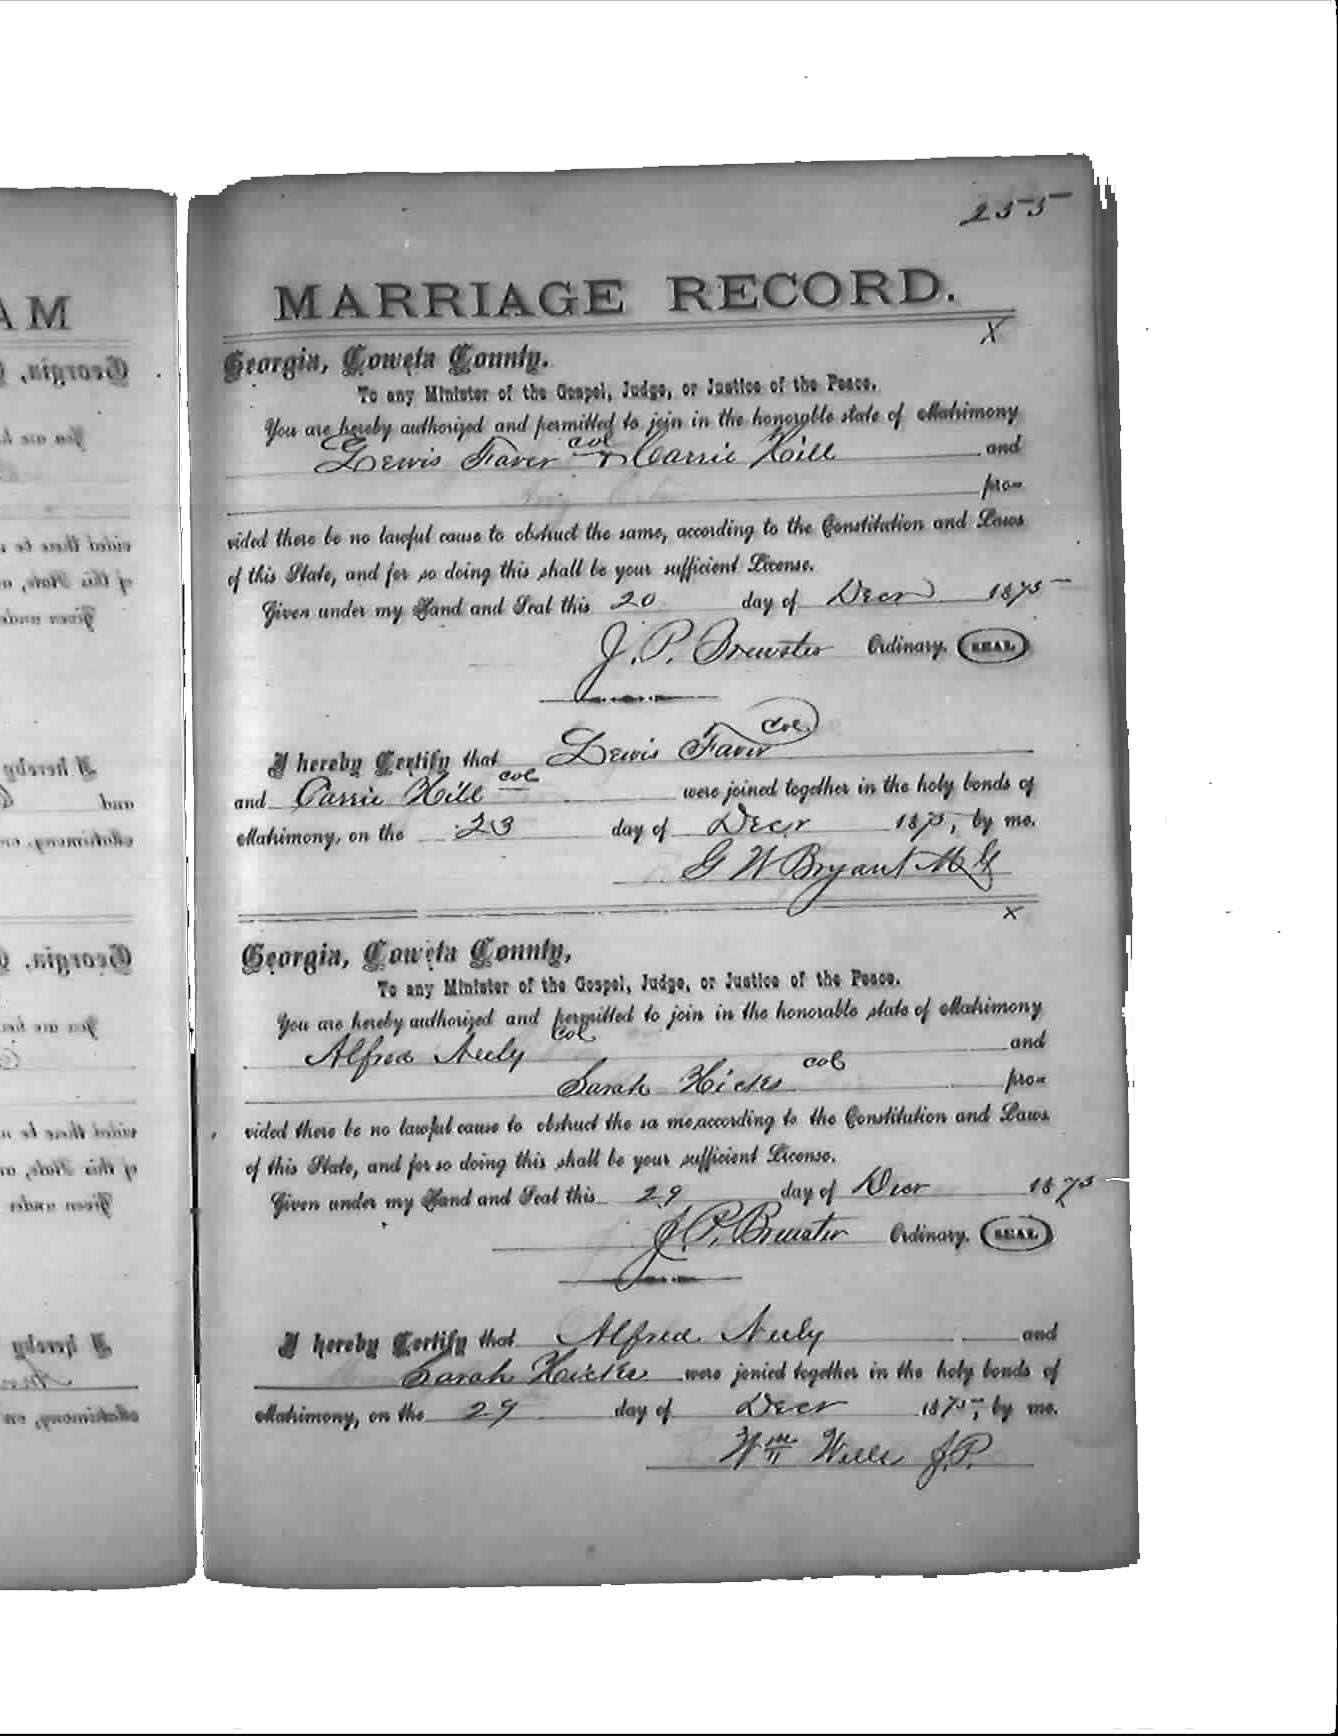 255
MARRIAGE RECORD.
X
Georgia, Coweta County.
To any Minister of the Gospel, Judge, or Justice of the Peace.
You are hereby authorized and permitted to join in the honorable state of Matrimony
Lewis Faver col & Carrie Hill and
pro-
vided there be no lawful cause to obstruct the same, according to the Constitution and Laws
of this State, and for so doing this shall be your sufficient License.
Given under my Hand and Seal this 20 day of Decr 1875
J. P. Brewster Ordinary. SEAL
I hereby Certify that Lewis Faver col
and Carrie Hill col were joined together in the holy bonds of
Matrimony, on the 23 day of Decr 1875, by me.
G W Bryant M G
x
Georgia, Coweta County,
To any Minister of the Gospel, Judge, or Justice of the Peace.
You are hereby authorized and permitted to join in the honorable state of Matrimony
Alfred Neely col and
Sarah Hicks col pro-
vided there be no lawful cause to obstruct the sa me,according to the Constitution and Laws
of this State, and for so doing this shall be your sufficient License.
Given under my Hand and Seal this 29 day of Decr 1875
J. P. Brewster Ordinary. SEAL
I hereby Certify that Alfred Neely and
Sarah Hicks were jonied together in the holy bonds of
Matrimony, on the 29 day of Decr 1875, by me.
Wm Wells J.P.
AM